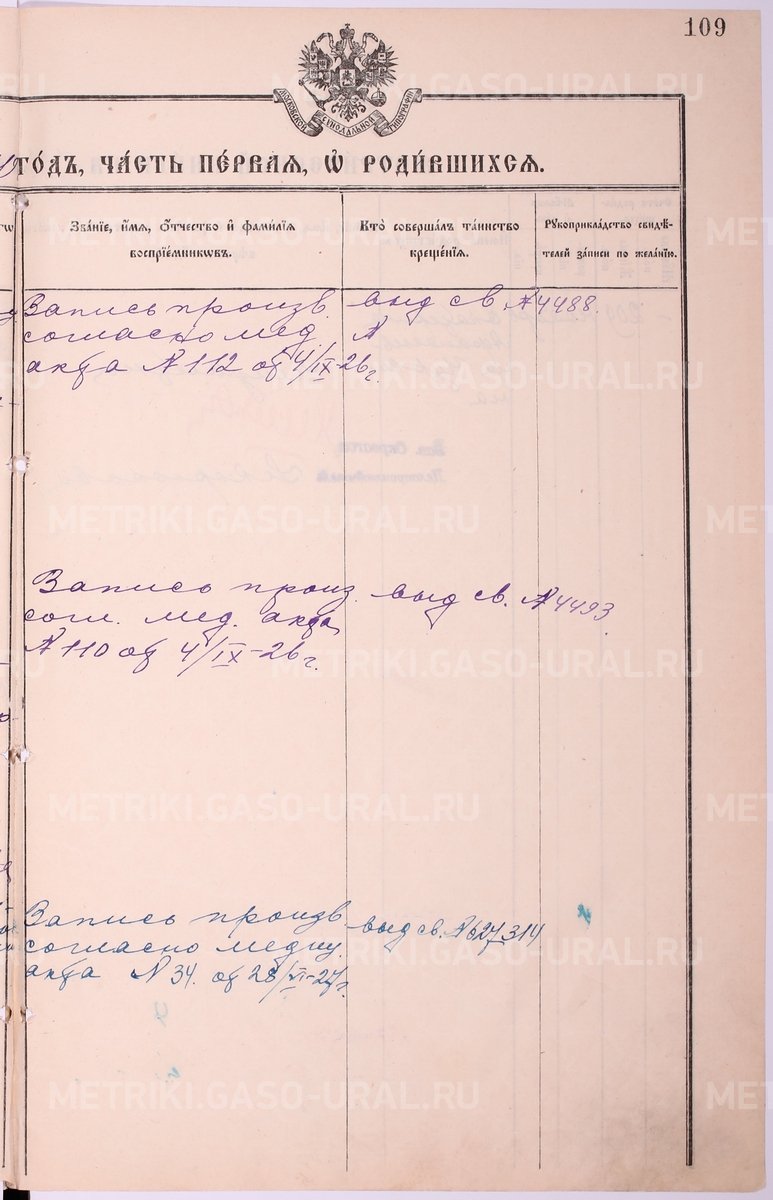 109
МОСКОВСКОЙ СѴНОДАЛЬНОЙ ТИПОГРАФІИ
го́дъ, ча́сть пе́рвая, ѡ҆ роди́вшихся.
Зва́нїе, и҆́мя, ѻ҆́тчество и҆ фами́лїя
воспрїе́мникѡвъ.
Кто̀ соверша́лъ та́инство
креще́нїя.
Рꙋкоприкла́дство свидѣ́-
телей за́писи по жела́нїю.
Запись произв.
согласно мед.
акта № 112 от 4/IX-26 г.
выд св №4488.
№
Запись произ.
согл. мед. акта
№ 110 от 4/IX-26 г.
выд св. №4493.
Запись произв
согласно медиц.
акта № 34. от 28/VI-27 г.
выд св. №627314
METRIKI.GASO-URAL.RU